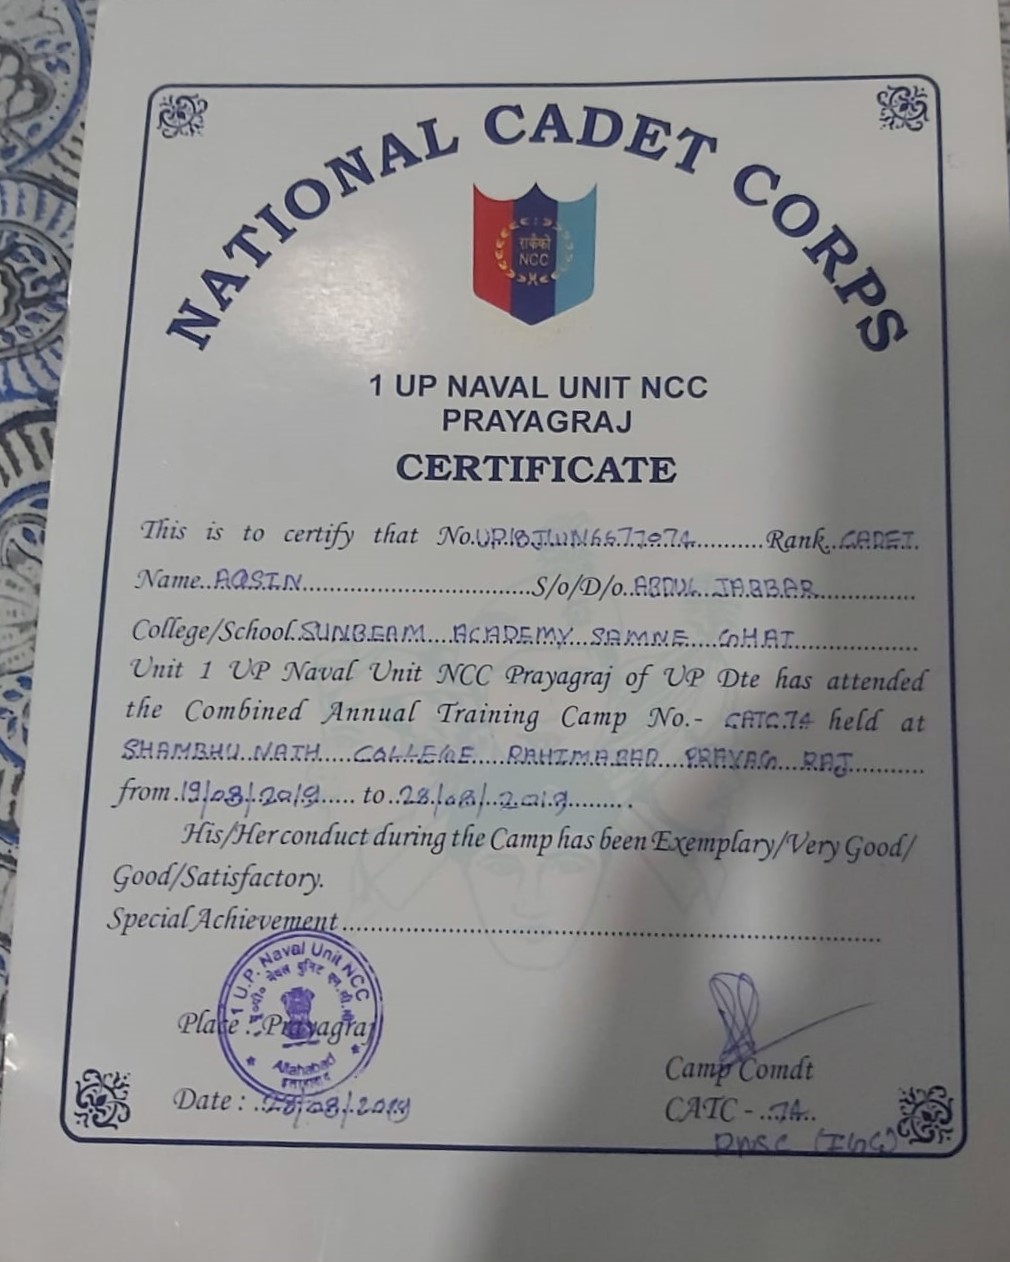 NATIONAL CADET CORPS
राकैको
NCC
1 UP NAVAL UNIT NCC
PRAYAGRAJ
CERTIFICATE
This is to certify that No. Rank..CADET.
Name..AQSIN..............................S/o/D/o..ABDUL..JABBAR..............
College/School.SUNBEAM....ACADEMY..SAMNE....GHAT..................
Unit 1 UP Naval Unit NCC Prayagraj of UP Dte has attended
the Combined Annual Training Camp No.- CATC.74 held at
SHAMBHU.NATH.....COLLEGE....RAHIMABAD...PRAYAG...RAJ..........
from.19/08/2019..... to..28/08/.2019........ .
His/Her conduct during the Camp has been Exemplary/Very Good/
Good/Satisfactory.
Special Achievement..............................................................................
1 U.P. Naval Unit NCC
Allahabad
इलाहाबाद
Place : Prayagraj
Camp Comdt
Date : ..28/08/.2019
CATC - ..74..